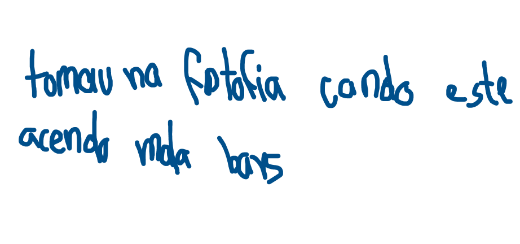 tomau na fotofia cando este
acendo mda bars